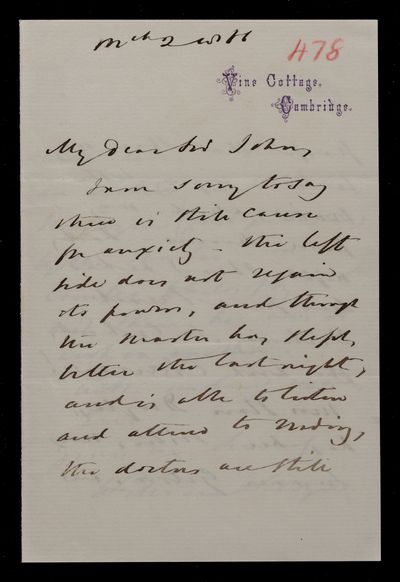 Mch 2 1866
478
Vine Cottage,
Cambridge.
My dear Sir John,
I am sorry to say
there is still cause
for anxiety – the left
side does not regain
its power, and though
the Master has slept
better the last night,
and is able to listen
and attend to reading,
the doctors are still